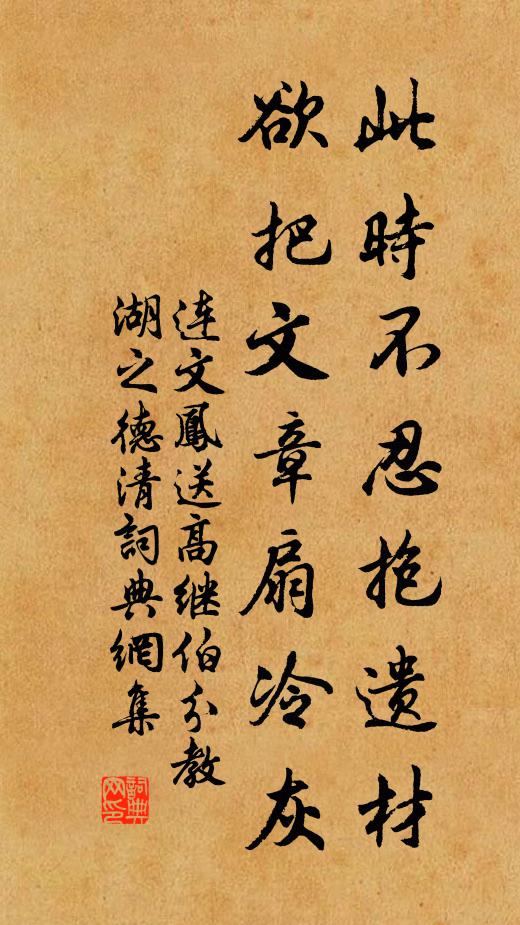 此時不忍抱遺材
欲把文章扇冷灰
連文鳳送高继伯分教
湖之德清詞典網集
詞典网印